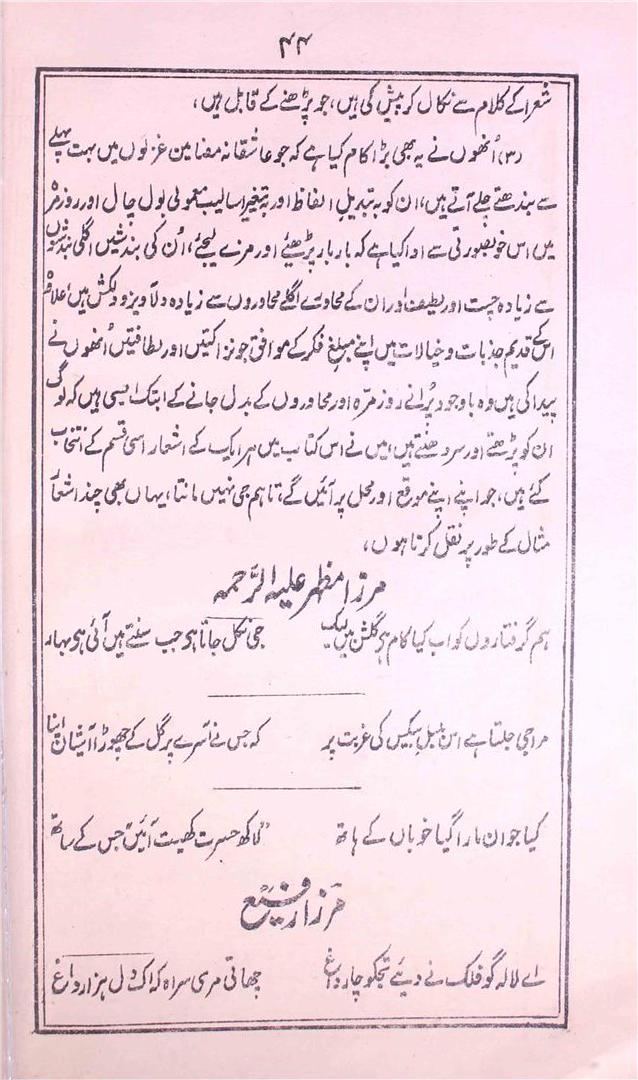 ۴۴
شعرا کے کلام سے نکال کر پیش کی ہیں، جو پڑھنے کے قابل ہیں،
(۳) اُنھوں نے یہ بھی بڑا کام کیا ہے کہ جو عاشقانہ مضامین غزلوں میں بہت پہلے
سے بندھتے چلے آتے ہیں، ان کو بہ تبدیلِ الفاظ اور بتغیرِ اسالیب معمولی بول چال اور روزمرہ
میں اس خوبصورتی سے ادا کیا ہے کہ بار بار پڑھیئے اور مزے لیجئے، اُن کی بندشیں اگلی بندشوں
سے زیادہ چست اور لطیف اور ان کے محاورے اگلے محاوروں سے زیادہ دلآویز و دلکش ہیں، علاوہ
اس کے قدیم جذبات و خیالات میں اپنے مبلغِ فکر کے موافق جو نزاکتیں اور لطافتیں اُنھوں نے
پیدا کی ہیں وہ باوجود پُرانے روزمرّہ اور محاوروں کے بدل جانے کے ابتک ایسی ہیں کہ لوگ
ان کو پڑھتے اور سر دھنتے ہیں، میں نے اس کتاب میں ہر ایک کے اشعار اسی قسم کے انتخاب
کئے ہیں، جو اپنے اپنے موقع اور محل پر آئیں گے، تاہم جی نہیں مانتا، یہاں بھی چند اشعار
مثال کے طور پر نقل کرتا ہوں،
مرزا مظہر علیہ الرّحمہ
ہم گرفتاروں کو اب کیا کام ہو گلشن میں لیک جی نکل جاتا ہو جب سنتے ہیں آئی ہو بہار
مرا جی جلتا ہے اس بلبلِ بیکس کی غربت پر کہ جس نے آسرے پر گل کے چھوڑا آشیاں اپنا
کیا جوان مارا گیا خوباں کے ہاتھ "لاکھ حسرت کھیت آئیں" جس کے ساتھ
مرزا رفیع
اے لالہ گو فلک نے دیئے تجکو چار داغ چھاتی مری سراہ کہ اک دل ہزار داغ